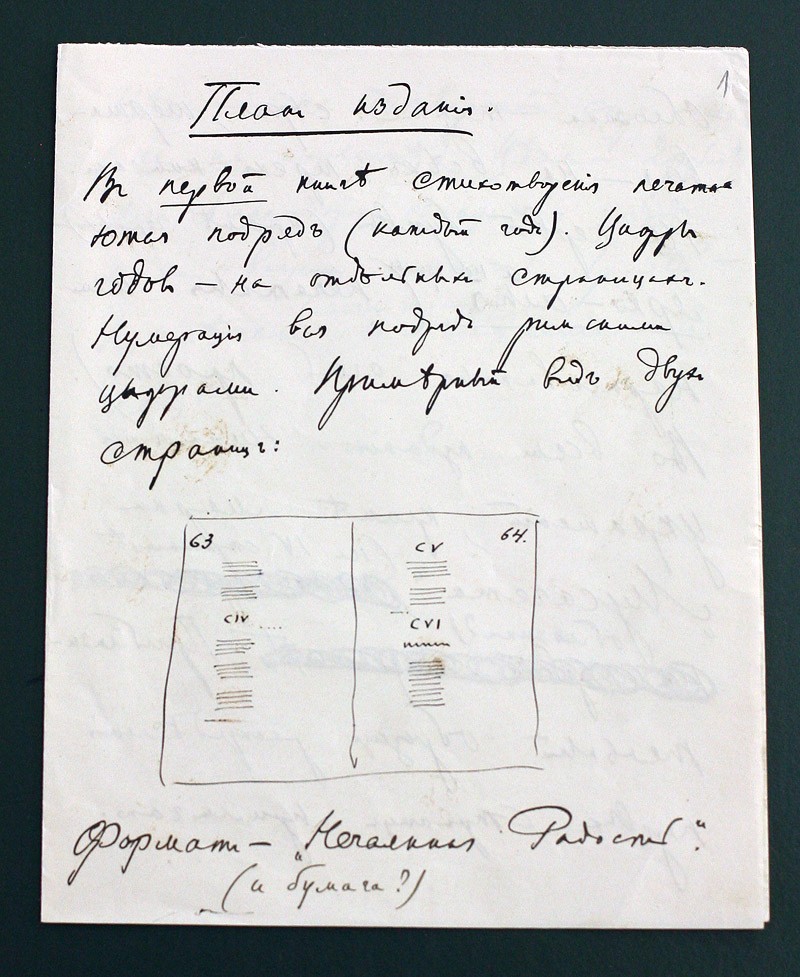 1
Планъ изданія.
Въ первой книгѣ стихотворенія печата-
ются подрядъ (каждый годъ). Цифры
годовъ — на отдѣльныхъ страницахъ.
Нумерація вся подрядъ римскими
цифрами. Примѣрный видъ двухъ
страницъ:
63
CIV ....
CV
64.
CVI
Форматъ — „Нечаянная Радость".
(и бумага?)